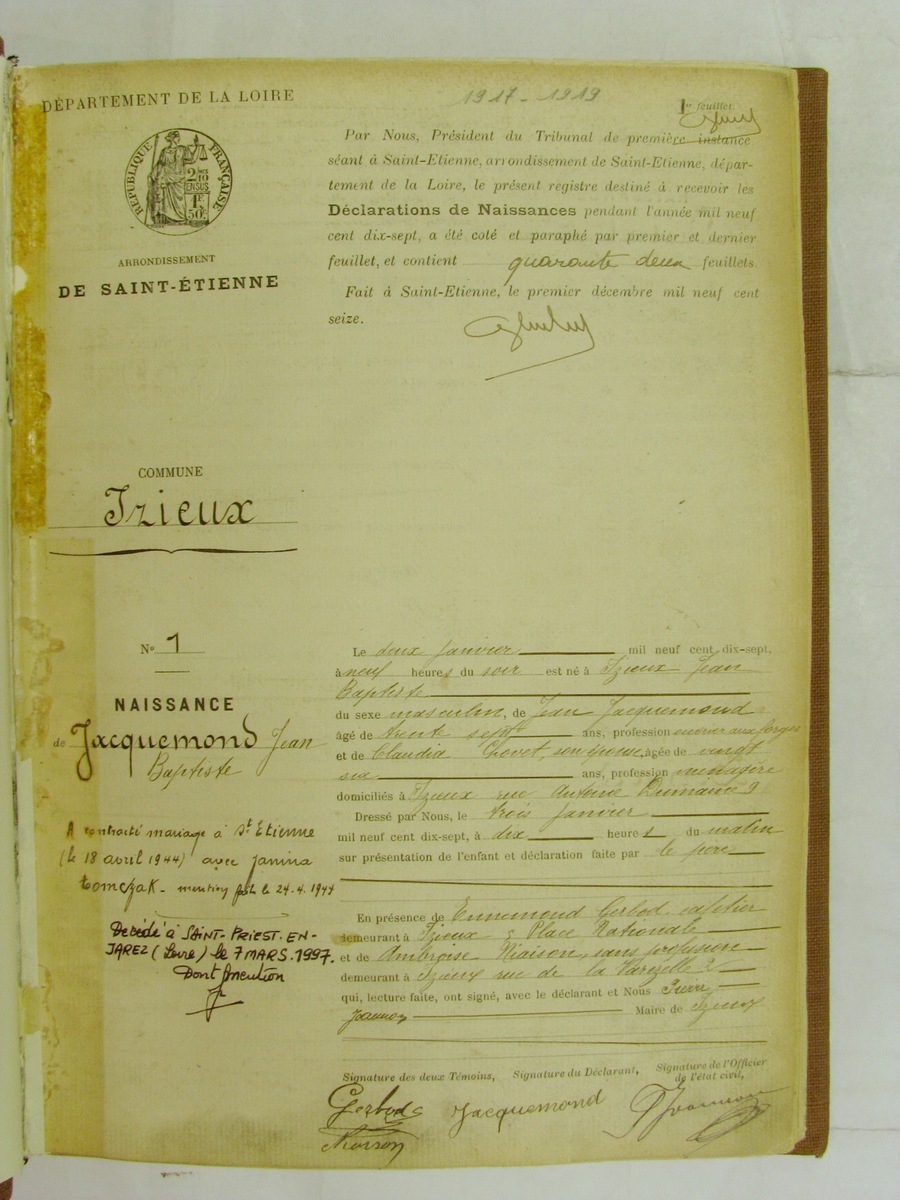 DÉPARTEMENT DE LA LOIRE
RÉPUBLIQUE FRANÇAISE
2 10 EN SUS
1F. 50c
ARRONDISSEMENT
DE SAINT-ÉTIENNE
COMMUNE
Izieux
1917 - 1919
1er feuillet.
Par Nous, Président du Tribunal de première instance
séant à Saint-Etienne, arrondissement de Saint-Etienne, dépar-
tement de la Loire, le présent registre destiné à recevoir les
Déclarations de Naissances pendant l'année mil neuf
cent dix-sept, a été coté et paraphé par premier et dernier
feuillet, et contient quarante deux feuillets.
Fait à Saint-Etienne, le premier décembre mil neuf cent
seize.
No 1
NAISSANCE
de Jacquemond Jean
Baptiste
A contracté mariage à St Etienne
(le 18 avril 1944) avec Janina
Tomczak - mention faite le 24.4.1944
Décédé à SAINT-PRIEST-EN-
JAREZ (Loire) le 7 MARS.1997.
Dont mention
Le deux janvier mil neuf cent dix-sept,
à neuf heures du soir est né à Izieux Jean
Baptiste
du sexe masculin, de Jean Jacquemond
âgé de trente sept ans, profession ouvrier aux forges
et de Claudia Chovet, son épouse, âgée de vingt
six ans, profession ménagère
domiciliés à Izieux rue Antoine Dumaine 9
Dressé par Nous, le trois janvier
mil neuf cent dix-sept, à dix heures du matin
sur présentation de l'enfant et déclaration faite par le père
En présence de Ennemond Gerbod, cafetier
demeurant à Izieux Place Nationale
et de Ambroise, sans profession
demeurant à Izieux rue de la Varizelle 2
qui, lecture faite, ont signé, avec le déclarant et Nous Pierre
Joannon Maire de Izieux
Signature des deux Témoins, Signature du Déclarant, Signature de l'Officier
de l'état civil,
Gerbod Jacquemond P Joannon